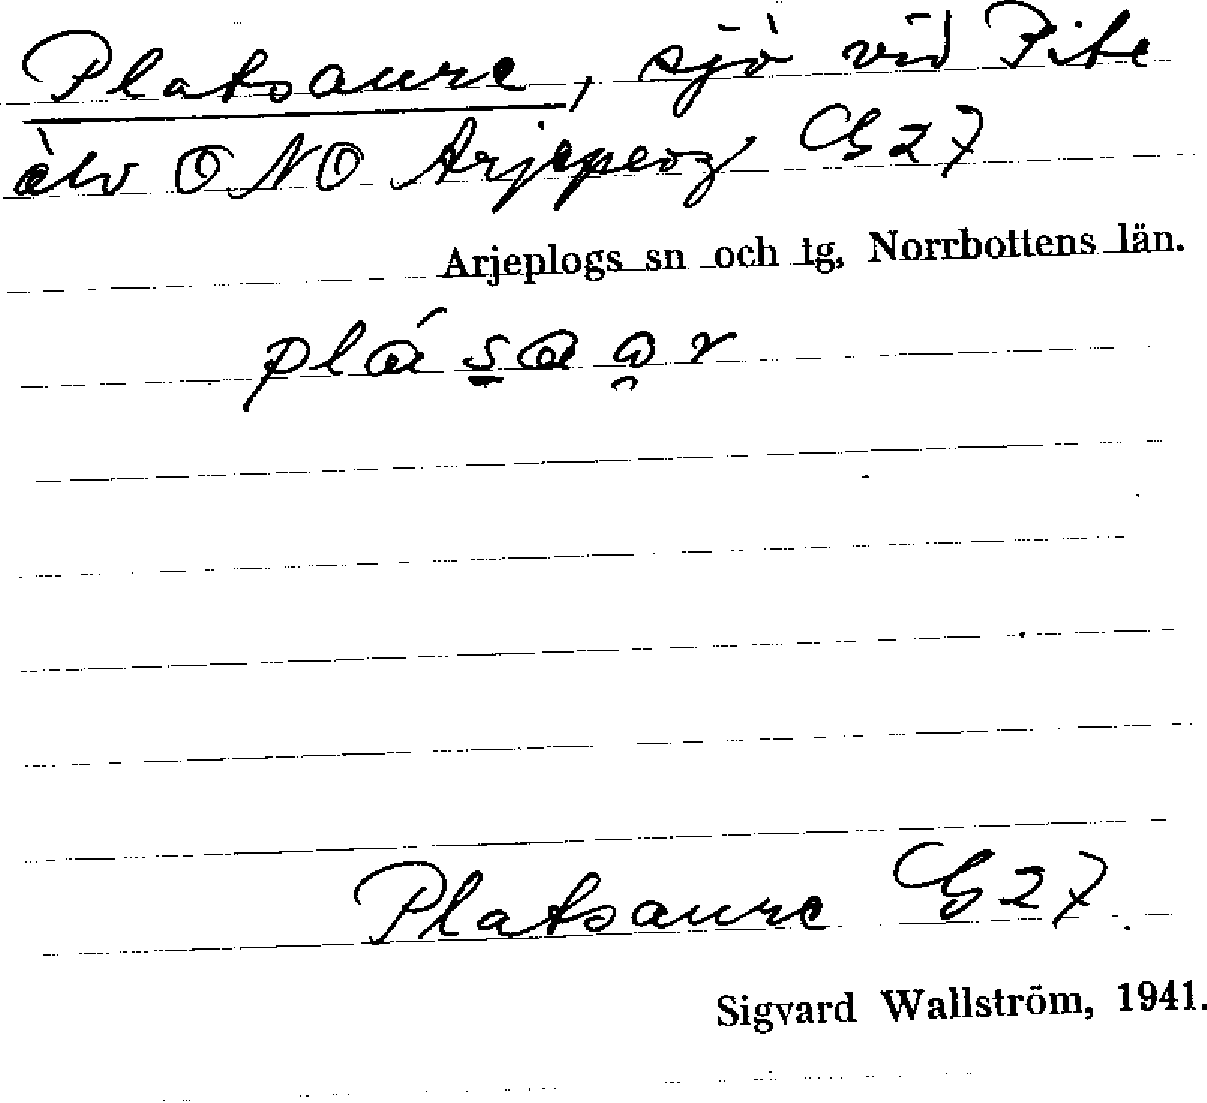 Platsaure, sjö vid Pite
älv ONO Arjeplog G 27
Arjeplogs sn och tg, Norrbottens län.
Platsaure G 27.
Sigvard Wallström, 1941.